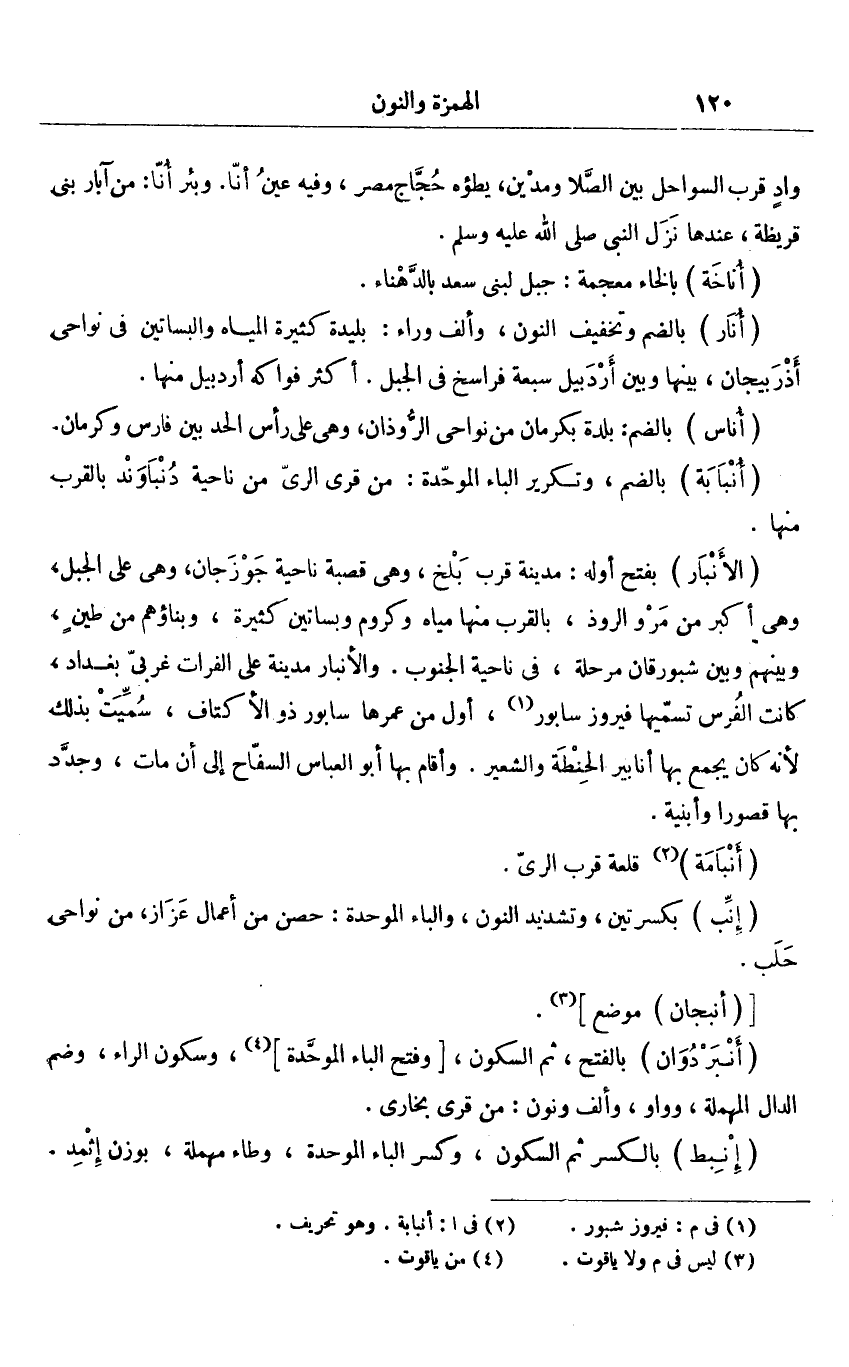 ١٢٠ الهمزة والنون
وادٍ قرب السواحل بين الصَّلا ومدْين، يطؤه حُجَّاج مصر ، وفيه عينُ أُنَّا. وبئر أُنَّا: من آبار بنى
قريظة ، عندها نَزَل النبى صلى الله عليه وسلم .
( أُنَاخَة ) بالخاء معجمة : جبل لبنى سعد بالدَّهْناء .
( أُنَار ) بالضم وتخفيف النون ، وألف وراء : بليدة كثيرة المياه والبساتين فى نواحى
أَذْرَبيجان ، بينها وبين أَرْدَبيل سبعة فراسخ فى الجبل . أكثر فواكه أردبيل منها .
( أُناس ) بالضم: بلدة بكرمان من نواحى الرُّوذان، وهى على رأس الحد بين فارس وكرمان.
( أُنْبَابَة ) بالضم ، وتكرير الباء الموحّدة : من قرى الرىّ من ناحية دُنْبَاوَنْد بالقرب
منها .
( الأَنْبَار ) بفتح أوله : مدينة قرب بَلْخ ، وهى قصبة ناحية جَوْزَجان، وهى على الجبل،
وهى أكبر من مَرْو الروذ ، بالقرب منها مياه وكروم وبساتين كثيرة ، وبناؤهم من طين ،
وبينهم وبين شبورقان مرحلة ، فى ناحية الجنوب . والأنبار مدينة على الفرات غربىّ بغداد ،
كانت الفُرس تسمّيها فيروز سابور(١) ، أول من عمرها سابور ذو الأكتاف ، سُمِّيَتْ بذلك
لأنه كان يجمع بها أنابير الحِنْطَة والشعير . وأقام بها أبو العباس السفّاح إلى أن مات ، وجدَّد
بها قصورا وأبنية .
( أَنْبَامَة )(٢) قلعة قرب الرىّ .
( إِنِّب ) بكسرتين ، وتشديد النون ، والباء الموحدة : حصن من أعمال عَزَاز، من نواحى
حَلَب .
[ ( أنبجان ) موضع ](٣) .
( أَنْبَرْدُوَان ) بالفتح ، ثم السكون ، [ وفتح الباء الموحَّدة ](٤) ، وسكون الراء ، وضم
الدال المهملة ، وواو ، وألف ونون : من قرى بخارى .
( إِنْبِط ) بالكسر ثم السكون ، وكسر الباء الموحدة ، وطاء مهملة ، بوزن إِثْمِد .
(١) فى م : فيروز شبور . (٢) فى ا : أنبابة . وهو تحريف .
(٣) ليس فى م ولا ياقوت . (٤) من ياقوت .